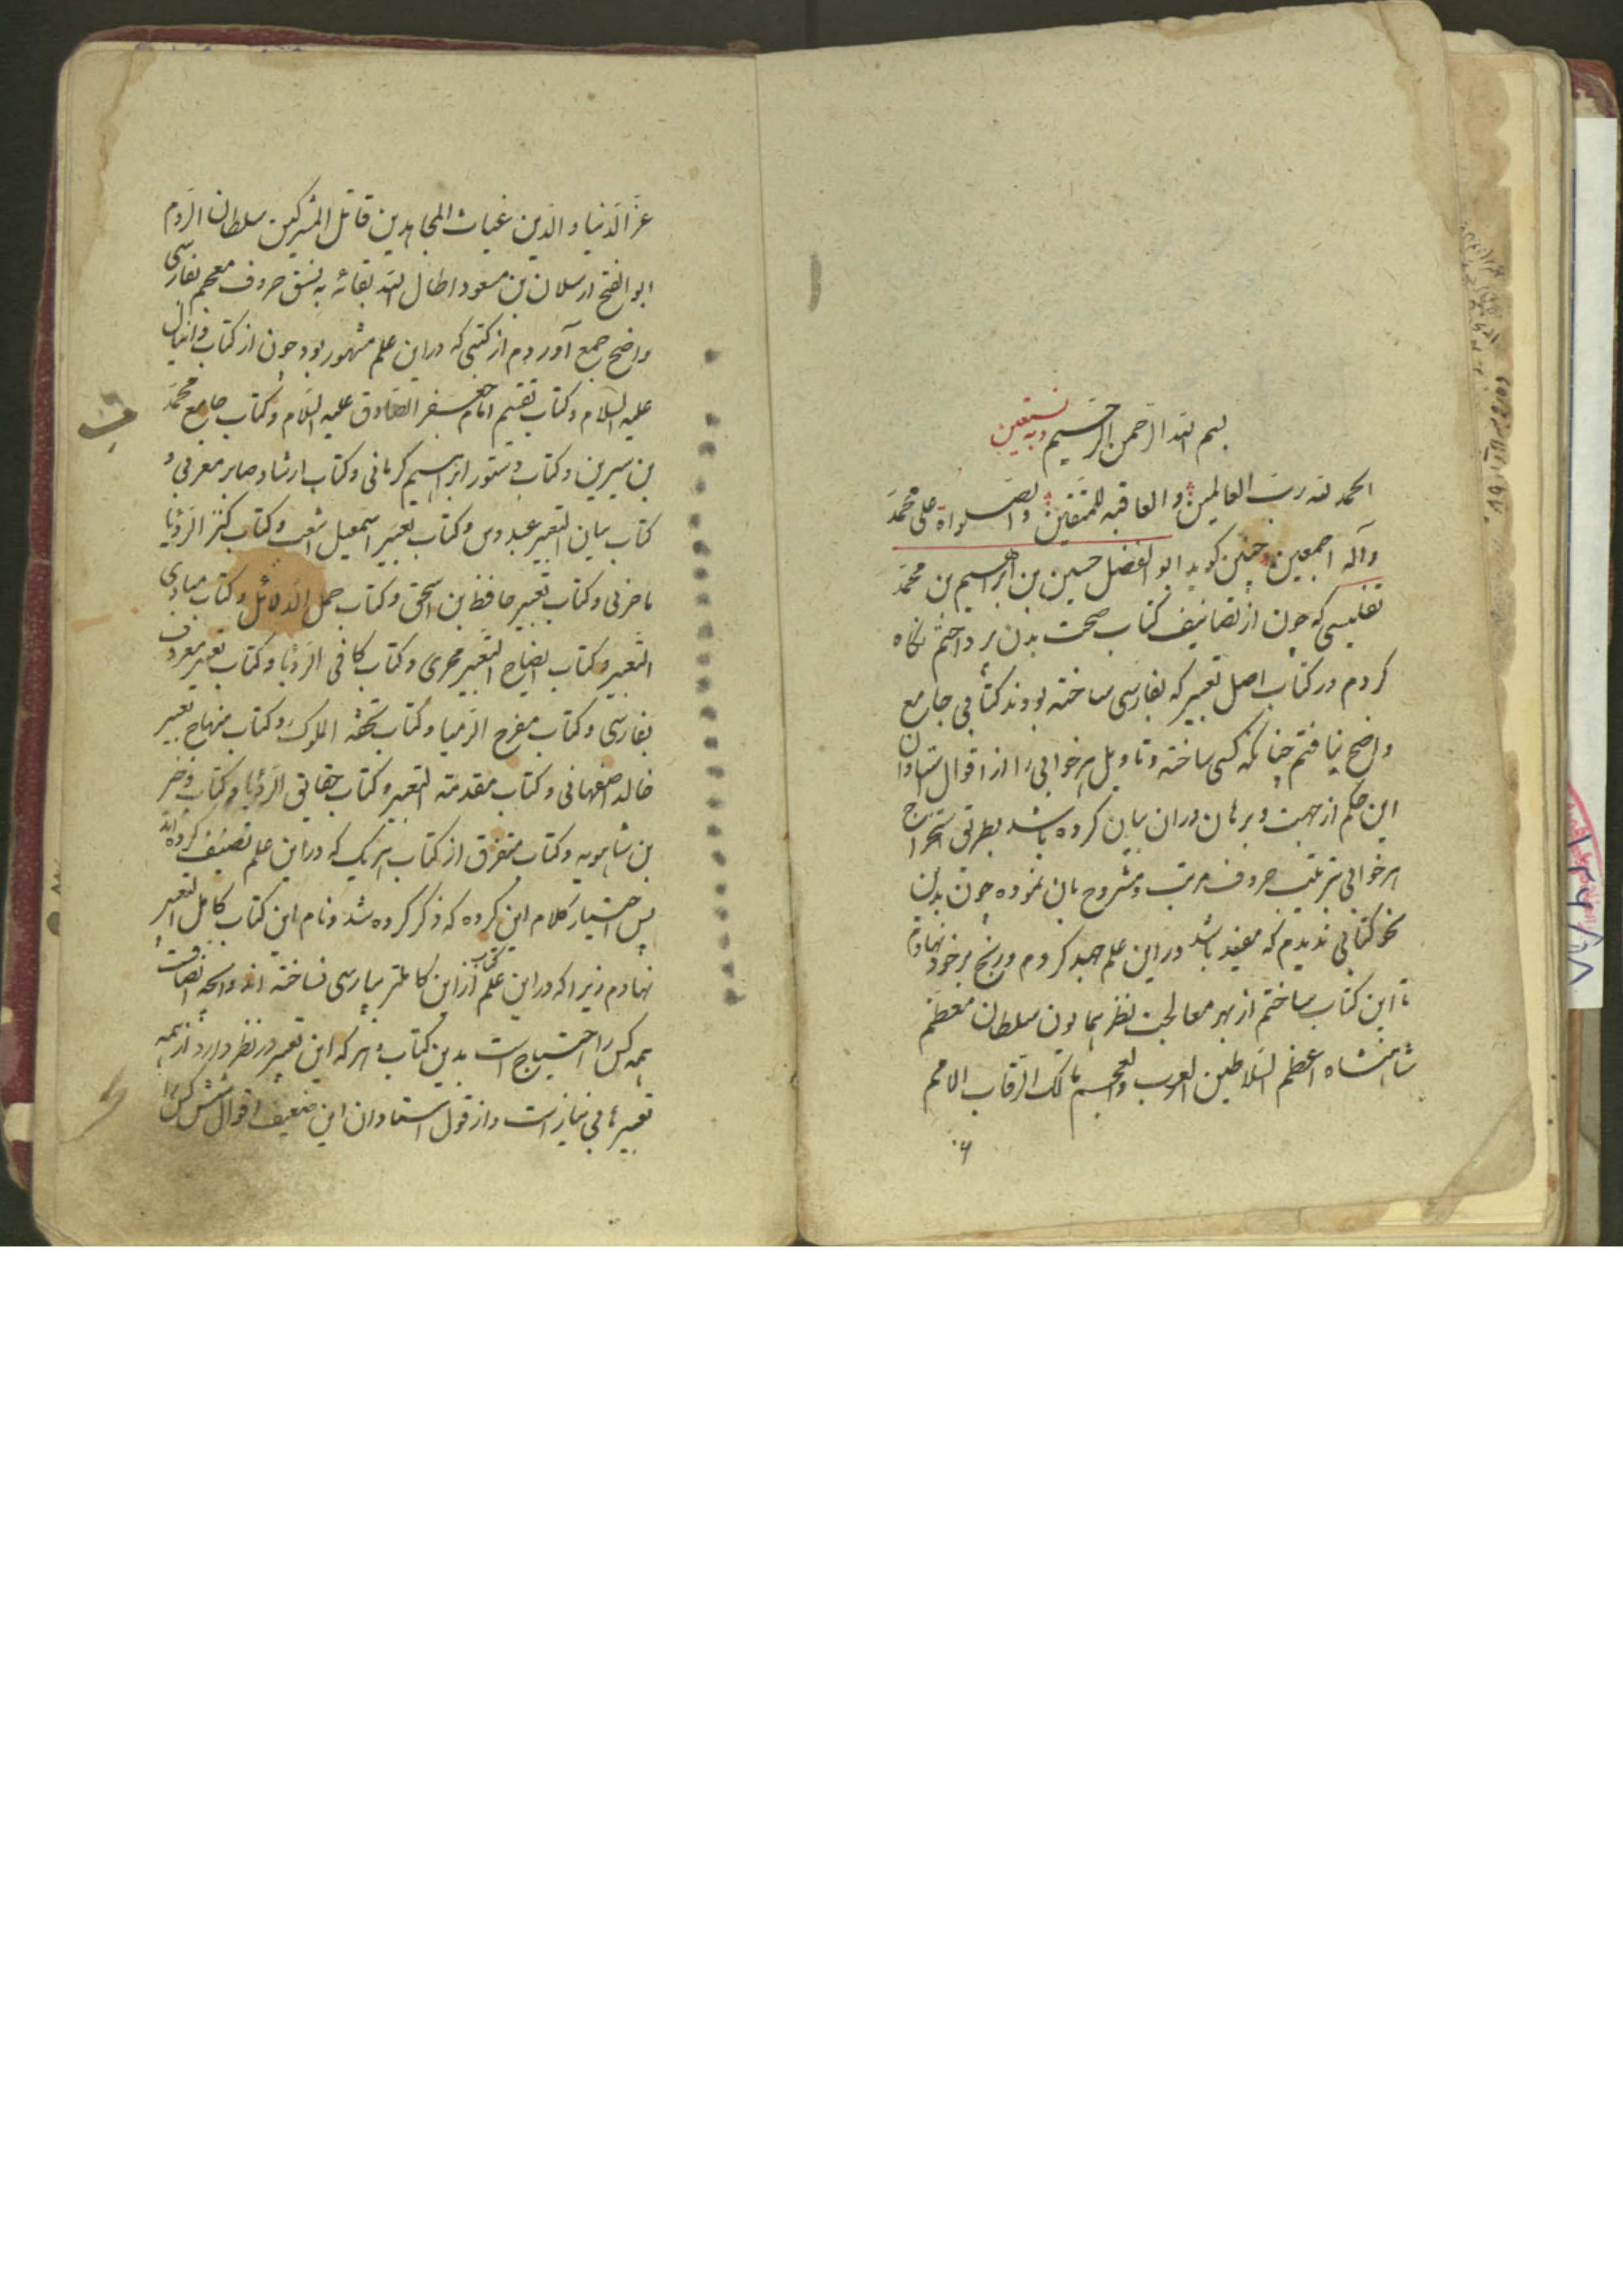 بسم الله الرحمن الرحیم وبه نستعین
الحمد لله رب العالمین والعاقبه للمتقین والصلواة علی محمد
وآله اجمعین چنین کوید ابو الفضل حسین بن ابراهیم بن محمد
تفلیسی که چون از تصانیف کتاب صحت بدن پرداختم نکاه
کردم در کتاب اصل تعبیر که بفارسی ساخته بودند کتابی جامع
واضح نیافتم چنانکه کسی ساخته وتاویل هر خوابی را از اقوال استادان
این حکم از جهت وبرهان دران بیان کرده باشد بطریق استخراج
هر خوابی بترتیب حروف مرتب ومشروح بان نموده چون بدین
نحو کتابی ندیدم که مفید باشد دراین علم جهد کردم ورنج بر خود نهادم
تا این کتاب ساختم از بهر معالجت نظر همایون سلطان معظم
شاهنشاه اعظم السلاطین العرب والعجم مالک الرقاب الامم
عز الدنیا والدین غیاث المجاهدین قاتل المشرکین سلطان الروم
ابو الفتح ارسلان بن مسعود اطال الله بقائه به نسق حروف معجم بفارسی
واضح جمع آوردم از کتبی که دراین علم مشهور بود چون از کتاب دانیال
علیه السلام وکتاب تقسیم امام جعفر الصادق علیه السلام وکتاب جامع محمد
بن سیرین وکتاب دستور ابراهیم کرمانی وکتاب ارشاد جابر مغربی و
کتاب بیان التعبیر عبدوس وکتاب تعبیر اسمعیل اشعث وکتاب کنز الرؤیا
ماخرنی وکتاب تعبیر حافظ بن اسحق وکتاب جمل الدلائل وکتاب مبادی
التعبیر وکتاب ایضاح التعبیر محری وکتاب کافی الرؤیا وکتاب تعبیر معروف
بفارسی وکتاب مفرح الرمیا وکتاب تحفه الملوک وکتاب منهاج تعبیر
خالد اصفهانی وکتاب مقدمه التعبیر وکتاب حقایق الرؤیا وکتاب وخر
بن شاهویه وکتاب متفرق از کتاب هر یک که دراین علم تصنیف کرده اند
پس اختیار کلام این کرده که ذکر کرده شد ونام این کتاب کامل التعبیر
نهادم زیرا که دراین علم کتاب از این کاملتر بپارسی نساخته اند
همه کس را احتیاج است بدین کتاب وهر که این تعبیر در نظر دارد از همه
تعبیرها بی نیاز است واز قول استادان این ضعیف اقوال شش کس را